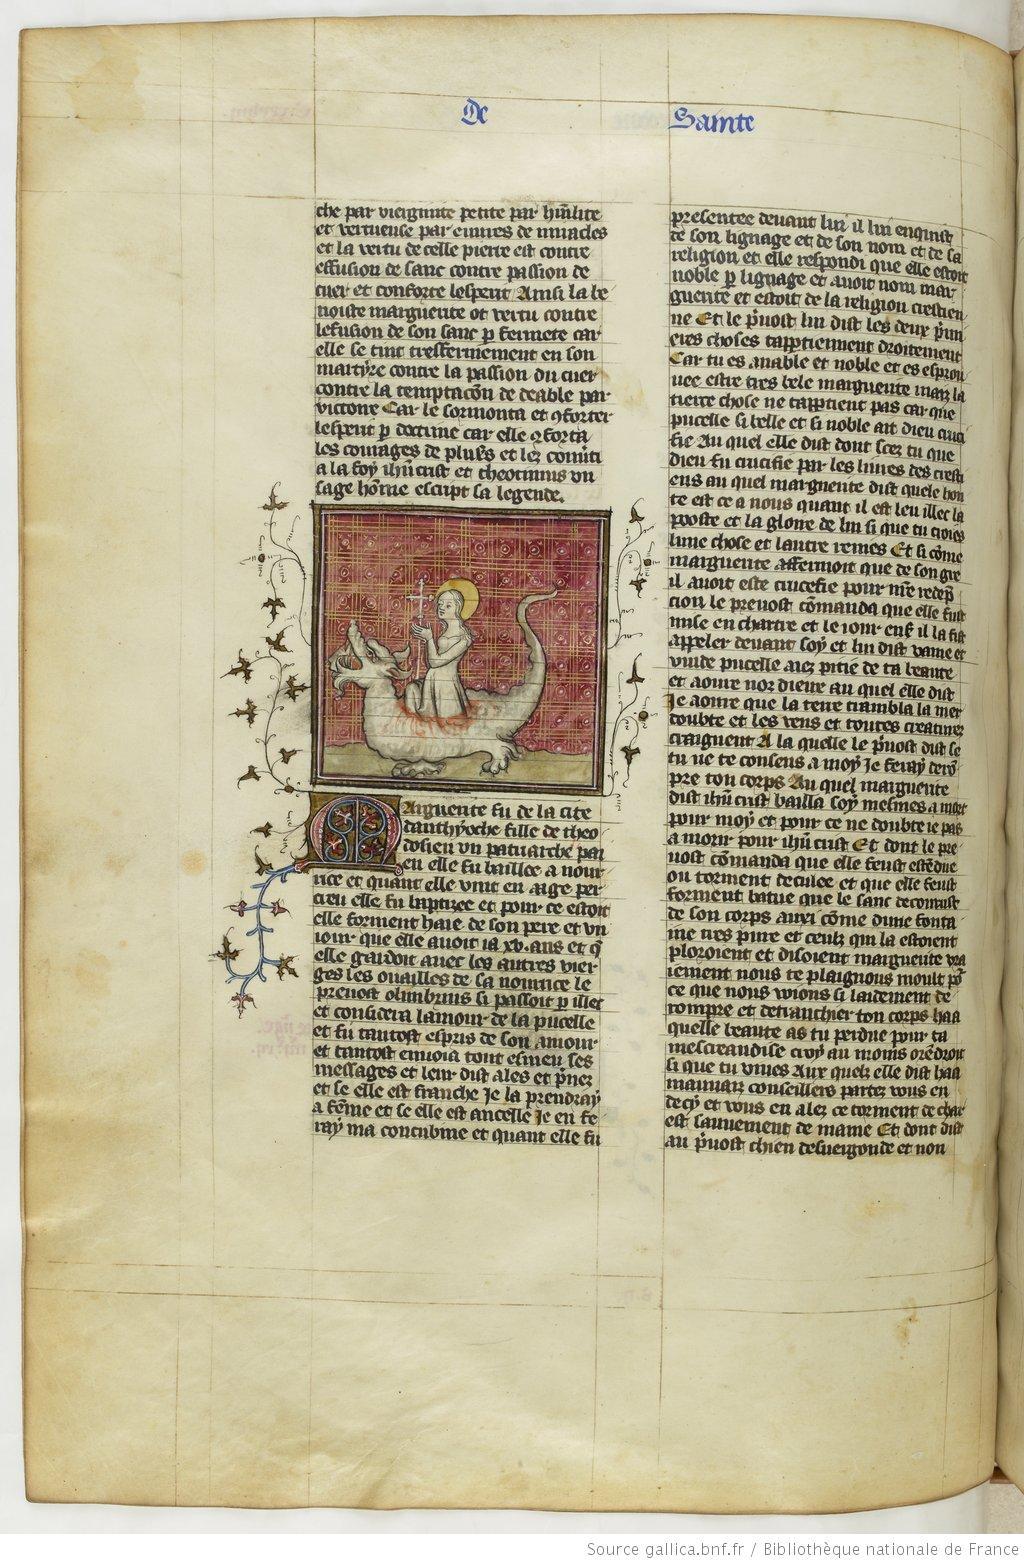 De
Sainte
che par vieiginite petite par hu̅ilite
et vertueuse par euures de miracles
et la vertu de celle pierre est contre
effusion de sanc contre passion de
cuer et conforte lesperit Ainsi la be
noiste marguerite ot vertu contre
lefusion de son sanc p fermete car
elle se tint tresfermement en son
martyre contre la passion du cuer
contre la temptaco̅n de deable par
victoire Car le sormonta et ꝯforter
lesperit p doctrine car elle ꝯforta
les courages de plus̅rs et les co̅uerti
a la foy ih̅ucrist et theotimus vn
sage ho̅me escript sa legende.
Marguerite fu de la cite
danthyoche fille de theo
dosien vn patriarche pai
en elle fu baillee a nour
rice et quant elle vint en aage per
cieu elle fu baptizee et pour ce estoit
elle forment haie de son pere et vn
iour que elle auoit ia .xv. ans et q̅
elle gardoit auec les autres vier
ges les ouailles de sa nourrice le
preuost olimbrius si passoit p illec
et considera lamour de la pucelle
et fu tantost espris de son amour
et tantost enuoia tout esmeu ses
messages et leur dist ales et p̅nez
et se elle est franche Je la prendray
a fe̅me et se elle est ancelle Je en fe
ray ma concubine et quant elle fu
presentee deuant lui il lui enquist
de son lignage et de son nom et de sa
religion et elle respondi que elle estoit
noble p lignage et auoit nom mar
guerite et estoit de la religion crestien
ne Et le p̅uost lui dist les deux p̅mi
eres choses tapptiennent droitement
Car tu es amable et noble et es esprou
uee estre tres bele marguerite mais la
tierce chose ne tapptient pas car que
pucelle si belle et si noble ait dieu cruci
fie Au quel elle dist dont scez tu que
dieu fu crucifie par les liures des cresti
ens au quel marguerite dist quele hon
te est ce a nous quant il est leu illec la
poste et la gloire de lui si que tu croies
lune chose et lautre renies Et si co̅me
marguerite affermoit que de son gre
il auoit este crucefie pour n̅re redep̅
cion le preuost co̅manda que elle fust
mise en chartre et le iour ens̅ il la fist
appeler deuant soy et lui dist vaine et
vuide pucelle aiez pitie de ta beaute
et aoure noz dieux au quel elle dist
Je aoure que la terre trambla la mer
doubte et les vens et toutes creatures
craignent A la quelle le p̅uost dist se
tu ne te consens a moy Je feray dero̅
pre ton corps Au quel marguerite
dist ih̅ucrist bailla soy mesmes a mort
pour moy et pour ce ne doubte ie pas
a morir pour ih̅ucrist Et dont le pre
uost co̅manda que elle feust este̅due
ou torment deculee et que elle feust
forment batue que le sanc decourust
de son corps auxi co̅me dune fonta
ine tres pure et ceulz qui la estoient
ploroient et disoient marguerite vra
iement nous te plaignons moult po̅
ce que nous veons si laidement de
rompre et detranchier ton corps haa
quelle beaute as tu perdue pour ta
mescreandise croy au moins ore̅droit
si que tu viues Aux quelz elle dist haa
mauuaiz conseilliers partez vous en
decy et vous en alez ce torment de char
est sauuement de mame Et dont dist
au p̅uost chien desuergonde et non
Source gallica.bnf.fr / Bibliothèque nationale de France